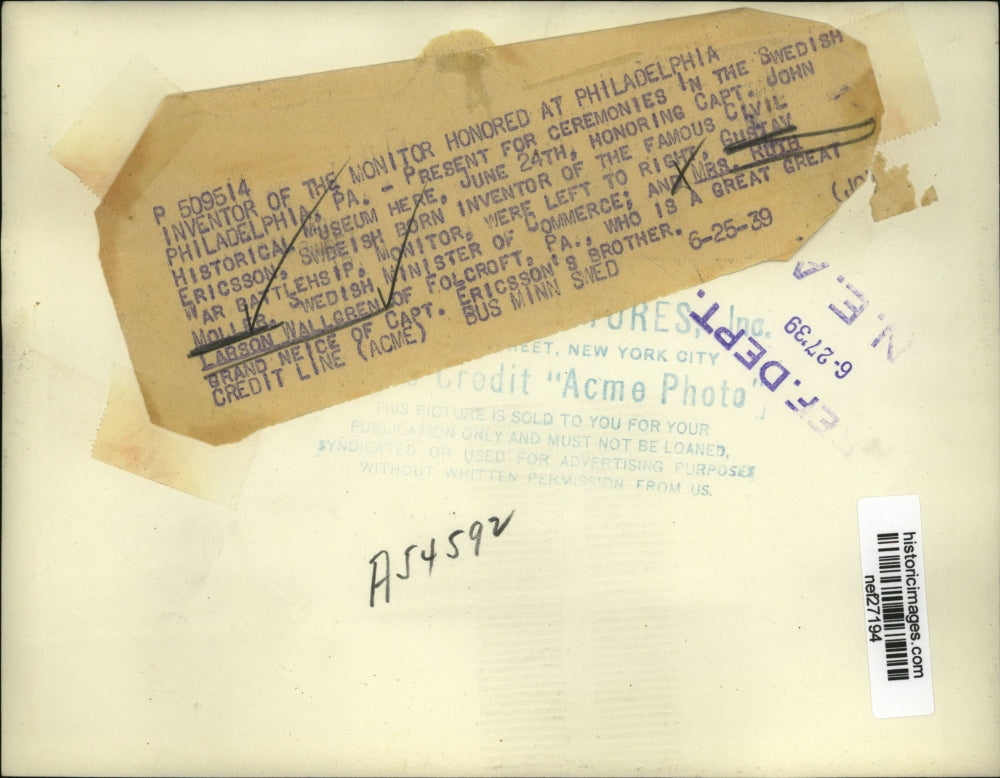 P 509514
INVENTOR OF THE MONITOR HONORED AT PHILADELPHIA
PHILADELPHIA, PA. - PRESENT FOR CEREMONIES IN THE SWEDISH
HISTORICAL MUSEUM HERE, JUNE 24TH, HONORING CAPT. JOHN
ERICSSON, SWDEISH BORN INVENTOR OF THE FAMOUS CIVIL
WAR BATTLEHSIP, MONITOR, WERE LEFT TO RIGHT, GUSTAV
MOLLER, SWEDISH MINISTER OF COMMERCE; AND MRS. RUTH
LARSON WALLGREN OF FOLCROFT, PA., WHO IS A GREAT GREAT
GRAND NEICE OF CAPT. ERICSSON'S BROTHER.
CREDIT LINE (ACME) BUS MINN SWED 6-25-39 (JO
TURES, Inc.
REET, NEW YORK CITY
Credit "Acme Photo"
THIS PICTURE IS SOLD TO YOU FOR YOUR
PUBLICATION ONLY AND MUST NOT BE LOANED,
SYNDICATED OR USED FOR ADVERTISING PURPOSES
WITHOUT WRITTEN PERMISSION FROM US.
N. E. A
6-27'39
REF. DEPT.
A54592
historicimages.com
nef27194